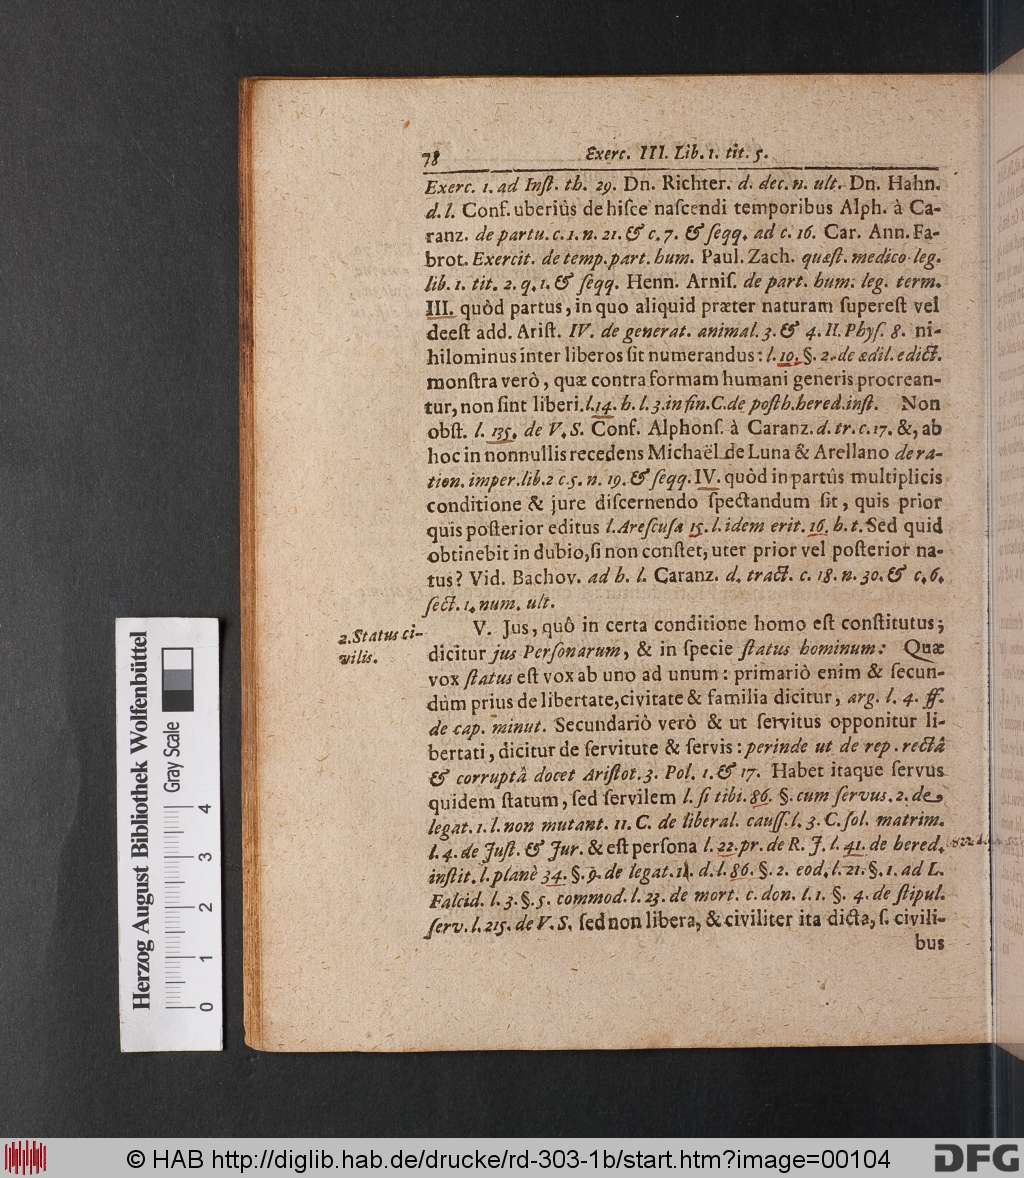 78 Exerc. III. Lib. 1. tit. 5.
Exerc. 1. ad Inſt. th. 29. Dn. Richter. d. dec. n. ult. Dn. Hahn.
d. l. Conf. uberiùs de hiſce naſcendi temporibus Alph. à Ca-
ranz. de partu. c. 1. n. 21. & c. 7. & ſeqq. ad c. 16. Car. Ann. Fa-
brot. Exercit. de temp. part. hum. Paul. Zach. quæſt. medico-leg.
lib. 1. tit. 2. q. 1. & ſeqq. Henn. Arniſ. de part. hum. leg. term.
III. quòd partus, in quo aliquid præter naturam ſupereſt vel
deeſt add. Ariſt. IV. de generat. animal. 3. & 4. II. Phyſ. 8. ni-
hilominus inter liberos ſit numerandus: l. 10. §. 2. de ædil. edict.
monſtra verò, quæ contra formam humani generis procrean-
tur, non ſint liberi. l. 14. h. l. 3. in fin. C. de poſth. hered. inſt. Non
obſt. l. 135. de V. S. Conf. Alphonſ. à Caranz. d. tr. c. 17. &, ab
hoc in nonnullis recedens Michaël de Luna & Arellano de ra-
tion. imper. lib. 2 c. 5. n. 19. & ſeqq. IV. quòd in partûs multiplicis
conditione & jure diſcernendo ſpectandum ſit, quis prior
quis poſterior editus l. Areſcuſa 15. l. idem erit. 16. h. t. Sed quid
obtinebit in dubio, ſi non conſtet, uter prior vel poſterior na-
tus? Vid. Bachov. ad h. l. Caranz. d. tract. c. 18. n. 30. & c. 6.
ſect. 1. num. ult.
2. Status ci-
vilis.
V. Jus, quô in certa conditione homo eſt conſtitutus;
dicitur jus Perſonarum, & in ſpecie ſtatus hominum: Quæ
vox ſtatus eſt vox ab uno ad unum: primariò enim & ſecun-
dùm prius de libertate, civitate & familia dicitur, arg. l. 4. ff.
de cap. minut. Secundariò verò & ut ſervitus opponitur li-
bertati, dicitur de ſervitute & ſervis: perinde ut de rep. rectâ
& corruptâ docet Ariſtot. 3. Pol. 1. & 17. Habet itaque ſervus
quidem ſtatum, ſed ſervilem l. ſi tibi. 86. §. cum ſervus. 2. de
legat. 1. l. non mutant. 11. C. de liberal. cauſſ. l. 3. C. ſol. matrim.
l. 4. de Juſt. & Jur. & eſt perſona l. 22. pr. de R. J. l. 41. de hered.
inſtit. l. planè 34. §. 9. de legat. 1. d. l. 86. §. 2. eod. l. 21. §. 1. ad L.
Falcid. l. 3. §. 5. commod. l. 23. de mort. c. don. l. 1. §. 4. de ſtipul.
ſerv. l. 215. de V. S. ſed non libera, & civiliter ita dicta, ſ. civili-
bus
Herzog August Bibliothek Wolfenbüttel
Gray Scale
0 1 2 3 4
© HAB http://diglib.hab.de/drucke/rd-303-1b/start.htm?image=00104
DFG